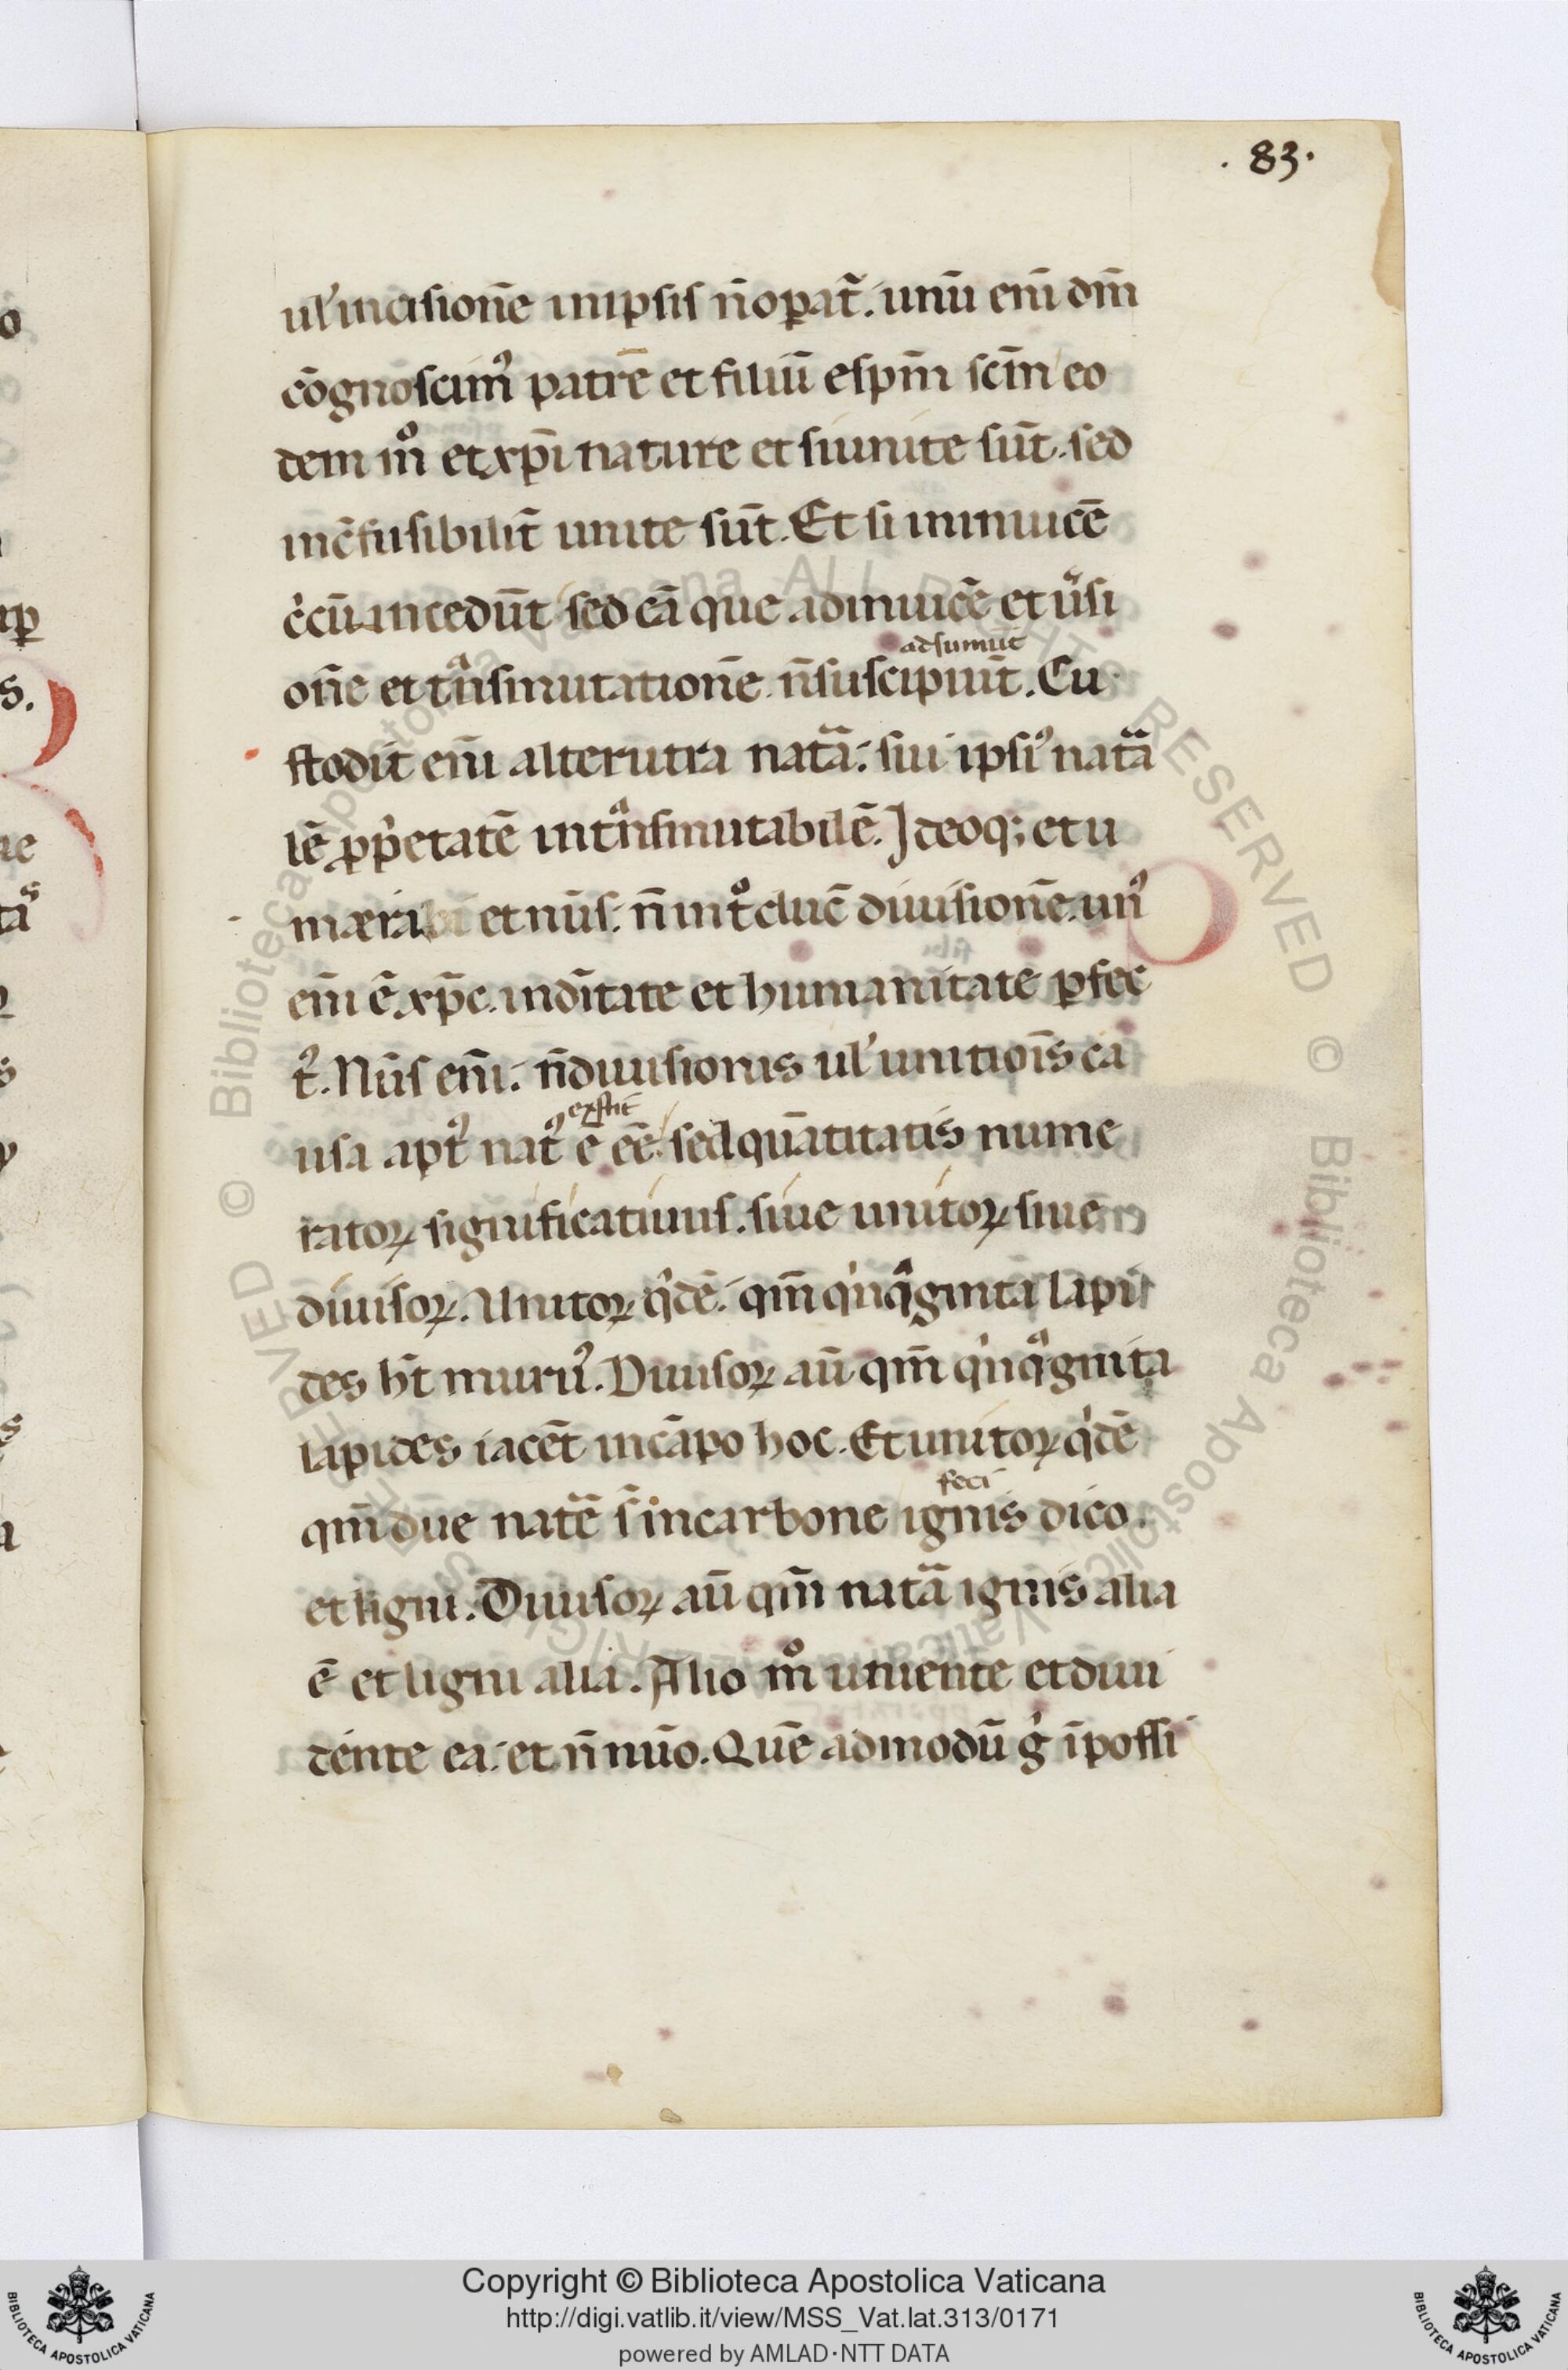 . 83 .
ul' incisionē in ipsis n̄ operat᷑. unū eni᷑ dm̄
cōgnoscimꝰ patrē et filiū e spm̄ scm̄ eo
dem mͦ et xp̄i nature et si unite sūt. sed
incōfusibilit᷑ unite sūt. Et si in inuicē
cͥcū incedūt sed eā que ad inuicē et ūsi
adsumūt
onē et tͣnsmutationē n̄ suscipiūt. Cu
stodit eni᷑ alterutra natᷓa: sui ipsiꝰ natᷓa
lē ꝓpͥetatē intͣnsmutabilē. Ideoq; et u
et nūs. n̄ intͦducē diuisionē. unꝰ
eni᷑ ē xp̄c. in dītate et humanitate ꝑfec
tꝰ. Nūs eni᷑. n̄ diuisionis ul' unitiōis ca
exstit
usa aptꝰ natꝰ ē eē. sed quātitatis nume
ratoꝝ significatiuus. siue unitoꝝ siue
diuisoꝝ. Unitoꝝ qͥdē. qm̄ qͥnqͣginta lapi
des ht̄ murꝰ. Diuisoꝝ aū qm̄ qͥnqͣginta
lapides iacēt in cāpo hoc. Et unitoꝝ qͥdē
feci
qm̄ due natᷓe s̄ in carbone ignis dico.
et ligni. Diuisoꝝ aū qm̄ natᷓa ignis alia
ē et ligni alia. Alio mͦ uniente et diui
dente ea. et n̄ nūo. Quē admodū gͥ īpossi
Copyright © Biblioteca Apostolica Vaticana
http://digi.vatlib.it/view/MSS_Vat.lat.313/0171
powered by AMLAD·NTT DATA